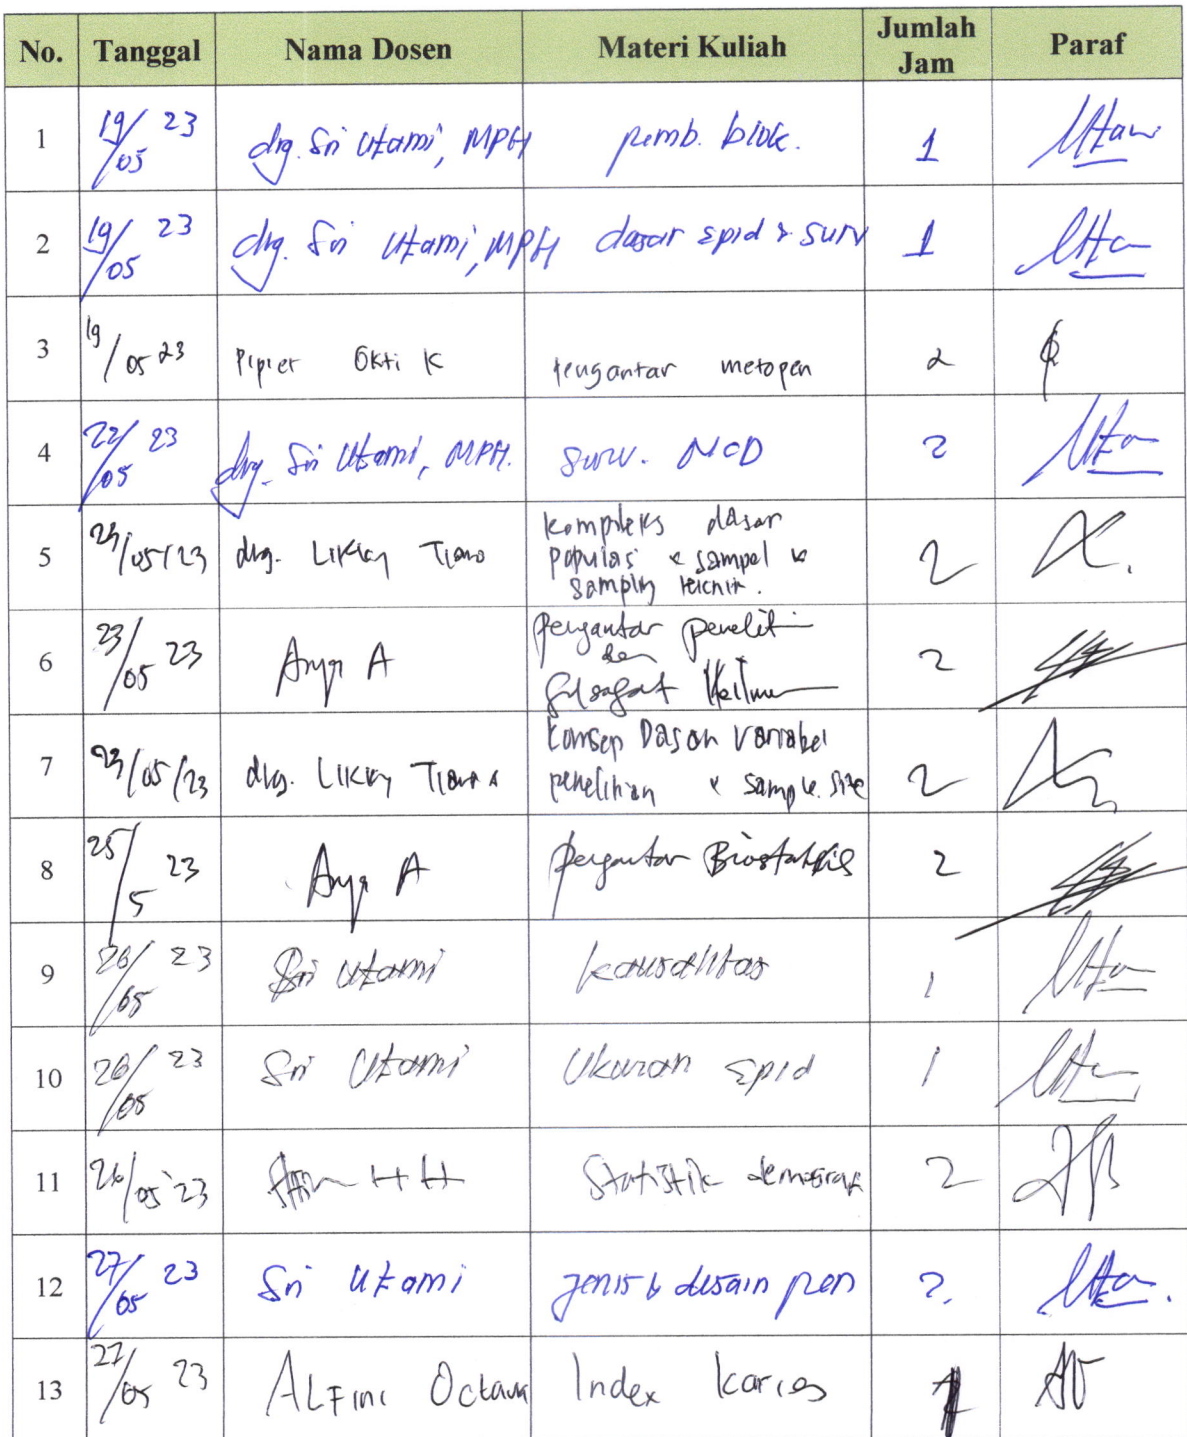 No. Tanggal Nama Dosen Materi Kuliah Jumlah Jam Paraf
1 19/05 23 drg. Sri Utami, MPH pemb. blok. 1
2 19/05 23 drg. Sri Utami, MPH dasar epid & surv 1
3 19/05 23 Pipiet Okti K pengantar metopen 2
4 22/05 23 drg. Sri Utami, MPH. surv. NCD 2
5 /05/23 drg. dasar
populasi & sampel &
sampling 2
6 23/05 23 A pengantar penelit
dan
filsafat 2
7 /05/23 drg. Konsep Dasar Variabel
penelitian & sample size 2
8 25/5 23 A pengantar Biostatistis 2
9 26/05 23 Sri Utami kausalitas 1
10 26/05 23 Sri Utami Ukuran Epid 1
11 26/05 23 HH Statistik 2
12 27/05 23 Sri Utami jenis & desain pen 2.
13 27/05 23 ALFini Octavia Index karies